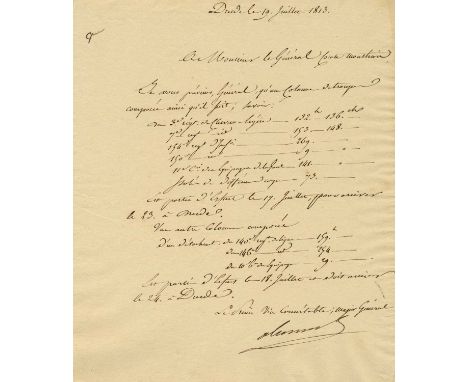 Dresde le 19 Juillet 1813.
A Monsieur le Général Comte
Je vous préviens, Général, qu'une Colonne de troupes
composée ainsi qu'il suit; savoir:
du 3e régt de Chevau-légers — 132 h 136 chx
7e regt id — 153 — 148
154e regt d'Infie — 269 — "
150e id — 29 — "
11e Cie des Equipages — 141 — "
Isolés de différens corps — 73 — "
est partie d'Erfurt le 17 Juillet pour arriver
le 23. à Dresde.
Une autre Colonne composée
d'un détachement du 140e regt de ligne — 159 h
du 146e id — 254
du 10e bn des Equipages — 29
est partie d'Erfurt le 18 Juillet et doit arriver
le 24. à Dresde.
Le Prince Vice Connétable, major Général